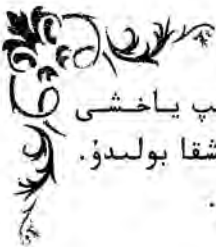 پ ياخشى
شقا بولىدۇ.
.